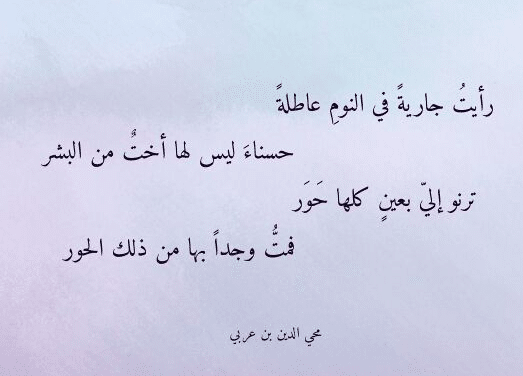 رأيتُ جاريةً في النومِ عاطلةً
حسناءَ ليس لها أختٌ من البشر
ترنو إليّ بعينٍ كلها حَوَر
فمتُّ وجداً بها من ذلك الحور
محي الدين بن عربي